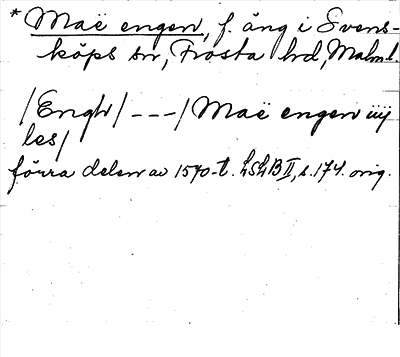 * Maë engen, f. äng i Svens-
köps sn, Frosta hd, Malm.l.
/Engh/ --- / Maë engen iiij
les/
förra delen av 1570-t. LSLB II, s. 174. orig.